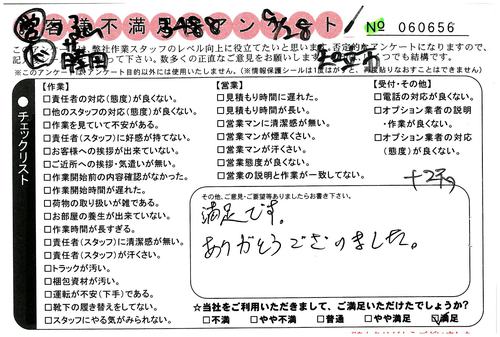 お客様不満足度アンケート
№ 060656
このアンケートは、弊社作業スタッフのレベル向上に役立てたいと思います。否定的なアンケートになりますので、
下さい。数多くの正直なご意見をお願いします
※このアンケートは 目的以外には使用いたしません。(※情報保護シールは1度はがすと、再度貼りなおすことはできません)
チェックリスト
【作業】
□責任者の対応(態度)が良くない。
□他のスタッフの対応(態度)が良くない。
□作業を見ていて不安がある。
□責任者(スタッフ)に好感が持てない。
□お客様への挨拶が出来ていない。
□ご近所への挨拶・気遣いが無い。
□作業開始前の内容確認がなかった。
□作業開始時間が遅れた。
□荷物の取り扱いが雑である。
□お部屋の養生が出来ていない。
□作業時間が長すぎる。
□責任者(スタッフ)に清潔感が無い。
□責任者(スタッフ)が汗くさい。
□トラックが汚い。
□梱包資材が汚い。
□運転が不安(下手)である。
□靴下の履き替えをしてない。
□スタッフにやる気がみられない。
【営業】
□見積もり時間に遅れた。
□見積もり時間が長い。
□営業マンに清潔感が無い。
□営業マンが煙草くさい。
□営業マンが汗くさい。
□営業態度が良くない。
□営業の説明と作業が一致してない。
【受付・その他】
□電話の対応が良くない。
□オプション業者の説明
・作業が良くない。
□オプション業者の対応
(態度)が良くない。
その他、ご意見・ご要望等ありましたらお書き下さい。
満足です。
ありがとうございました。
☆当社をご利用いただきまして、ご満足いただけたでしょうか?
□不満 □やや不満 □普通 □やや満足 ☑満足